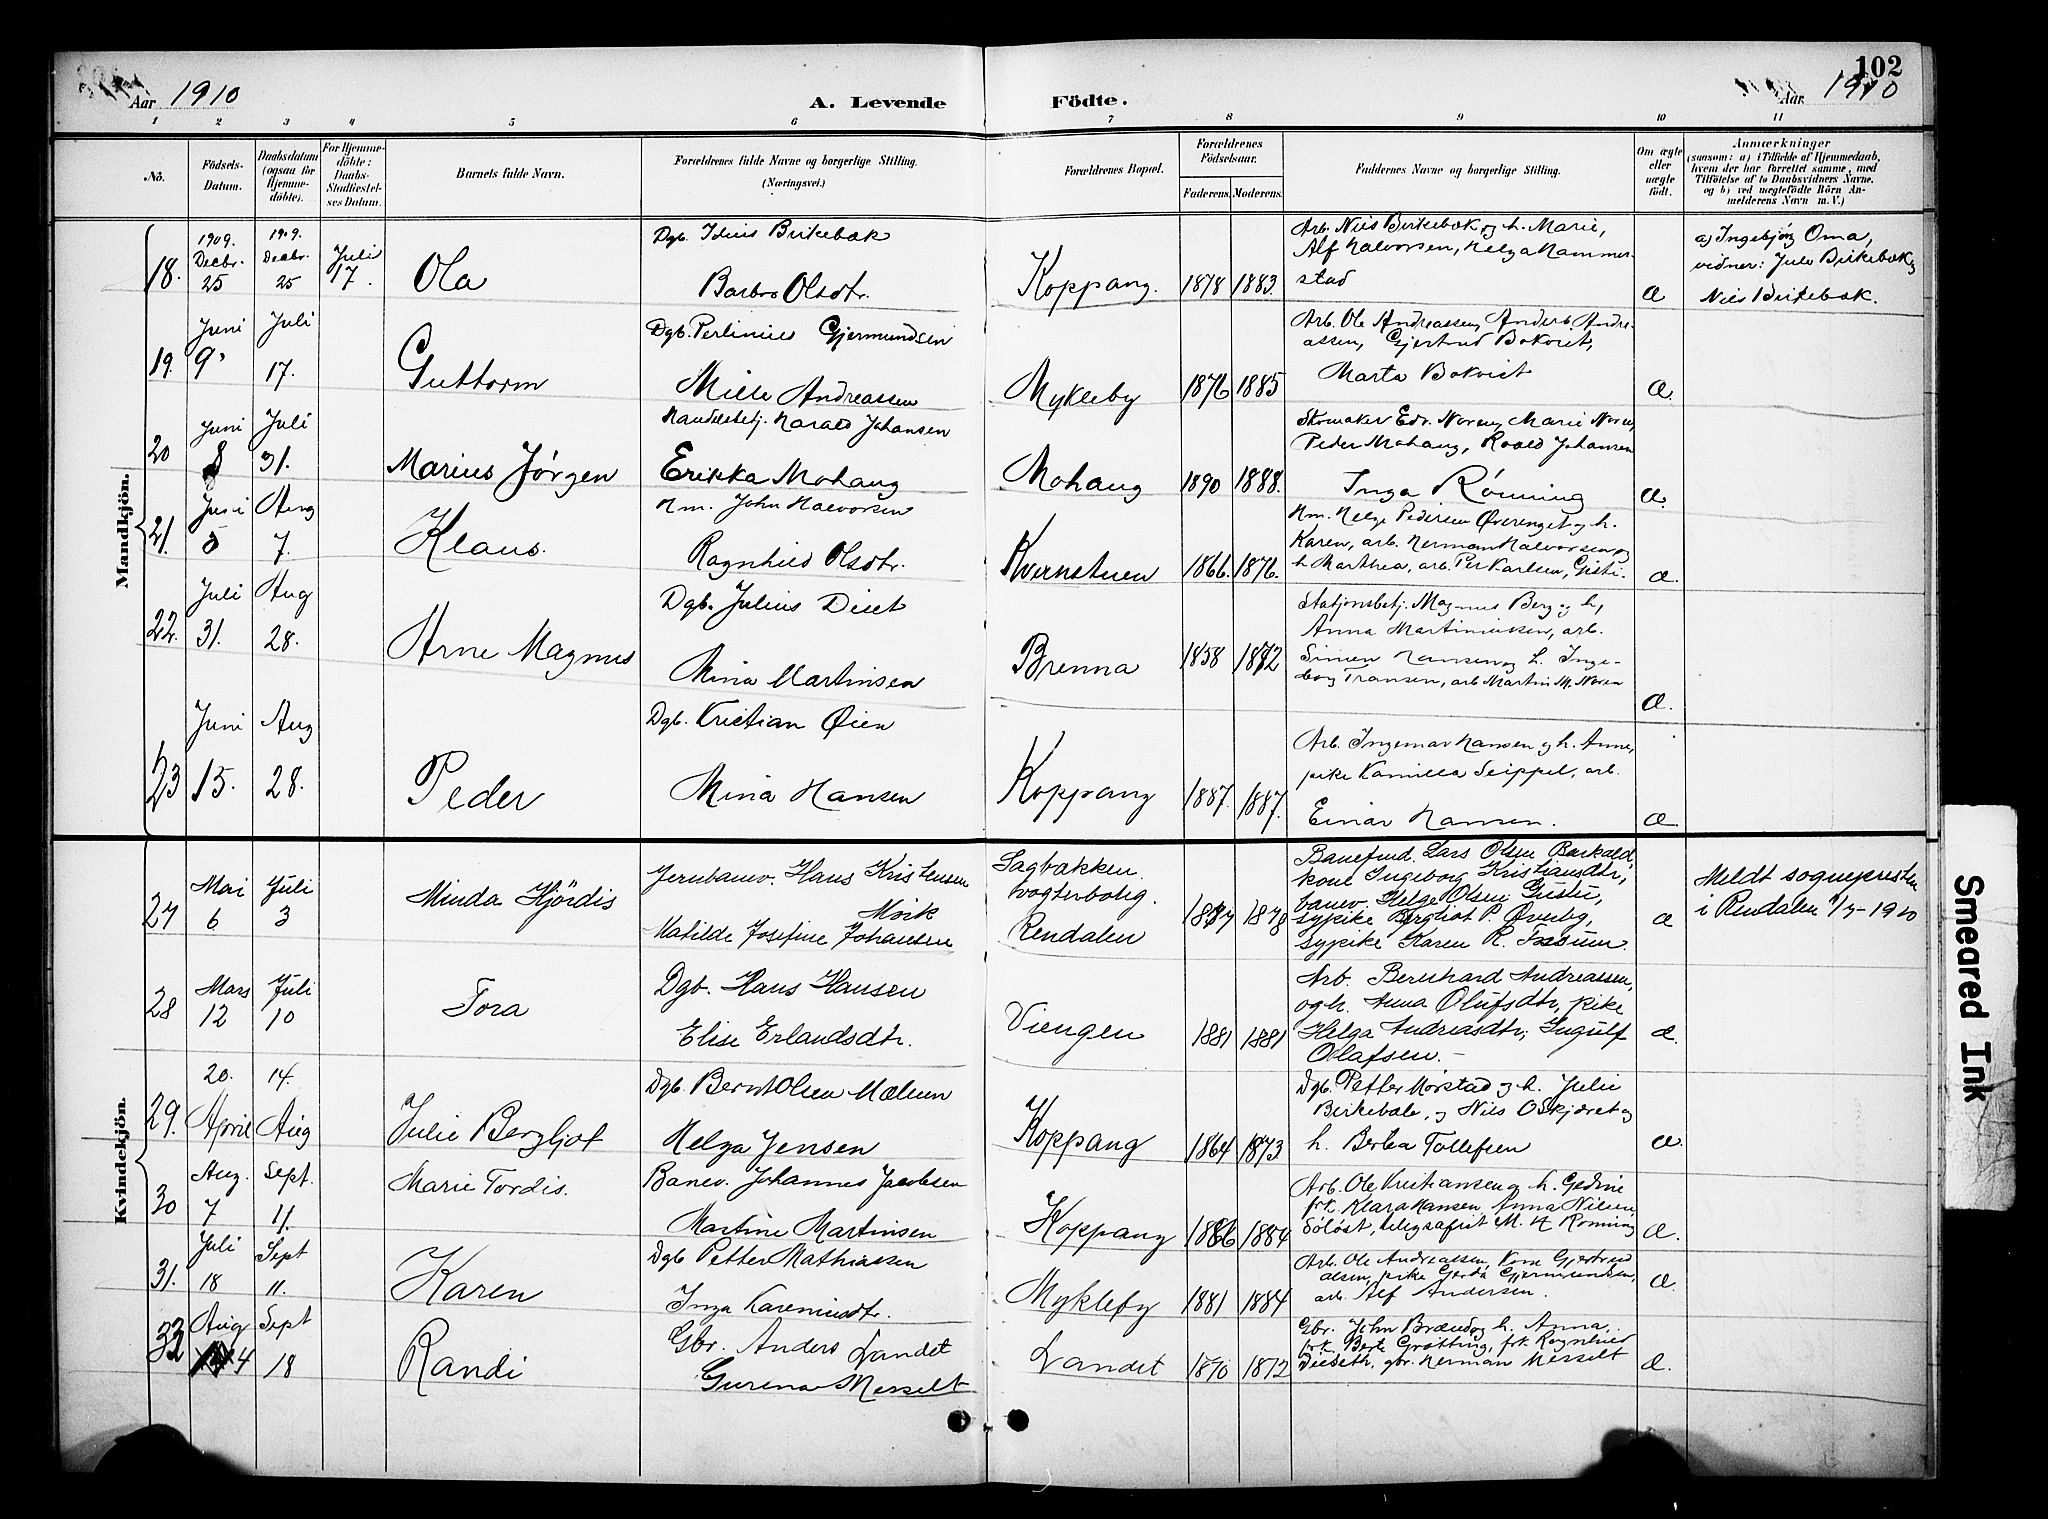 102
Aar 1910
A. Levende Födte.
Aar 1910
1 2 3 4 5 6 7 8 9 10 11
No.
Födsels-Datum.
Daabsdatum (ogsaa for Hjemmedöbte).
For Hjemmedöbte: Daabs-Stadfæstelses-Datum.
Barnets fulde Navn.
Forældrenes fulde Navne og borgerlige Stilling. (Næringsvei.)
Forældrenes Bopæl.
Forældrenes Födselsaar.
Faderens. Moderens.
Faddernes Navne og borgerlige Stilling.
Om ægte eller uægte födt.
Anmærkninger
(saasom: a) i Tilfælde af Hjemmedaab,
hvem der har forrettet samme, med
Tilföielse af to Daabsvidners Navne,
og b) ved uægtefödte Börn An-
melderens Navn m. V.)
Mandkjön.
18. 1909. Decbr. 25 1909. Decbr. 25 Juli 17. Ola
Dgb. Birkebæk
Barbro Olsdtr.
Koppang. 1878 1883.
Arb. Nils Birkebæk og h. Marie,
Alf Halvorsen, Helga Hammer-
stad
Æ
a) Ingebjørg Oma,
vidner: Birkebæk og
Nils Birkebæk.
19. Juni 9. Juli 17. Guttorm
Dgb. Perlinius Gjermundsen
Mille Andreassen
Mykleby 1876 1885
Arb. Ole Andreassen, Anders Andre-
assen, Gjertrud Bokvist,
Marta Bokvist
Æ.
20 Juni 8 Juli 31. Marius Jørgen
Handelsbetj. Harald Johansen
Erikka Mohaug
Mohaug 1890 1888.
Skomaker Edv. Noren, Marie Noren,
Peder Mohaug, Roald Johansen
Inga Rønning
Æ.
21. Juni 5 Aug 7. Klaus.
Hm. John Halvorsen
Ragnhild Olsdtr.
Kvernstuen 1866. 1876.
Hm. Helge Pedersen Øverenget og h.
Karen, arb. Herman Halvorsen og
h Marthea, arb. Per Karlsen,
Æ.
22. Juli 31. Aug 28. Arne Magnus
Dgb. Julius Diset
Mina Martinsen
Brenna 1858 1872
Stasjonsbetj. Magnus Berg og h,
Anna Martiniussen, arb.
Simen Hansen og h. Inge-
borg Fransen, arb Martin M. Noren
Æ.
23 Juni 15. Aug 28. Peder
Dgb. Kristian Øien
Mina Hansen
Koppang 1887. 1887.
Arb. Ingemar Hansen og h. Anne,
pike Kamilla Seippel, arb.
Einar Hansen.
Æ.
Kvindekjön.
27 Mai 6 Juli 3 Minda Hjördis
Jernbanev. Hans Kristensen
Mørk
Matilde Josefine Johansen
Sagbakken
vogterbolig.
Rendalen 1877 1878
Baneform. Lars Olsen Barkald,
kone Ingeborg Kristiansdtr,
banev. Helge Olsen Gustu,
sypike Bergliot P. Øverby,
sypike Karen R.
Æ
Meldt sognepresten
i Rendalen 1/7-1910
28 Mars 12 Juli 10 Tora
Dgb. Hans Hansen
Elise Erlandsdtr.
Viengen 1881 1881
Arb. Bernhard Andreassen,
og h. Anna Olufsdtr, pike
Helga Andreasdtr, Ingulf
Olafsen.-
Æ.
29. 20. April 14. Aug Julie Bergljot
Dgb. Bernt Olsen Mælum
Helga Jensen
Koppang 1864 1873
Dgb. Petter Mørstad og h. Julie
Birkebæk, og Nils Oskjæret og
h. Berta Tollefsen
Æ.
30 Aug. 7 Sept. 11. Marie Tordis.
Banev. Johannes Jacobsen
Martine Martinsen
Koppang 1886 1884
Arb. Ole Kristiansen og h. Gedine
frk. Klara Hansen, Anna Nilsen
Søløst, telegrafist M. H Rønning
Æ.
31. Juli 18 Sept 11. Karen
Dgb Petter Mathiassen
Inga Karenusdtr.
Mykleby 1881 1884
Arb. Ole Andreassen, Kone Gjertrud
olsen, pike Gerda Gjermundsen,
arb. Alf Andersen.
Æ.
32 Aug 4 Sept 18 Randi
Gbr. Anders Landet
Gurena Messelt
Landet 1870 1872
Gbr. John Brænd og h. Anna,
frk. Berte Grøtting, frk. Ragnhild
Diseth, gbr. Herman Messelt
Æ.
Smeared Ink